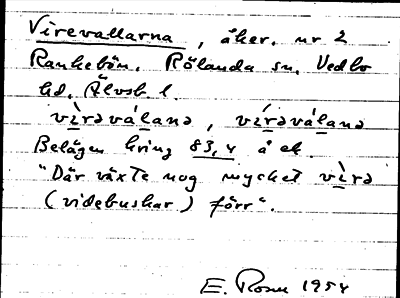 Virevallarna, åker. nr 2
Rankebön. Rölanda sn. Vedbo
hd. Älvsb. l.
vìrəválanə, vírəválanə
Belägen kring 83,4 å ek.
"Där växte nog mycket vìrə
(videbuskar) förr".
E. Rosu 1954